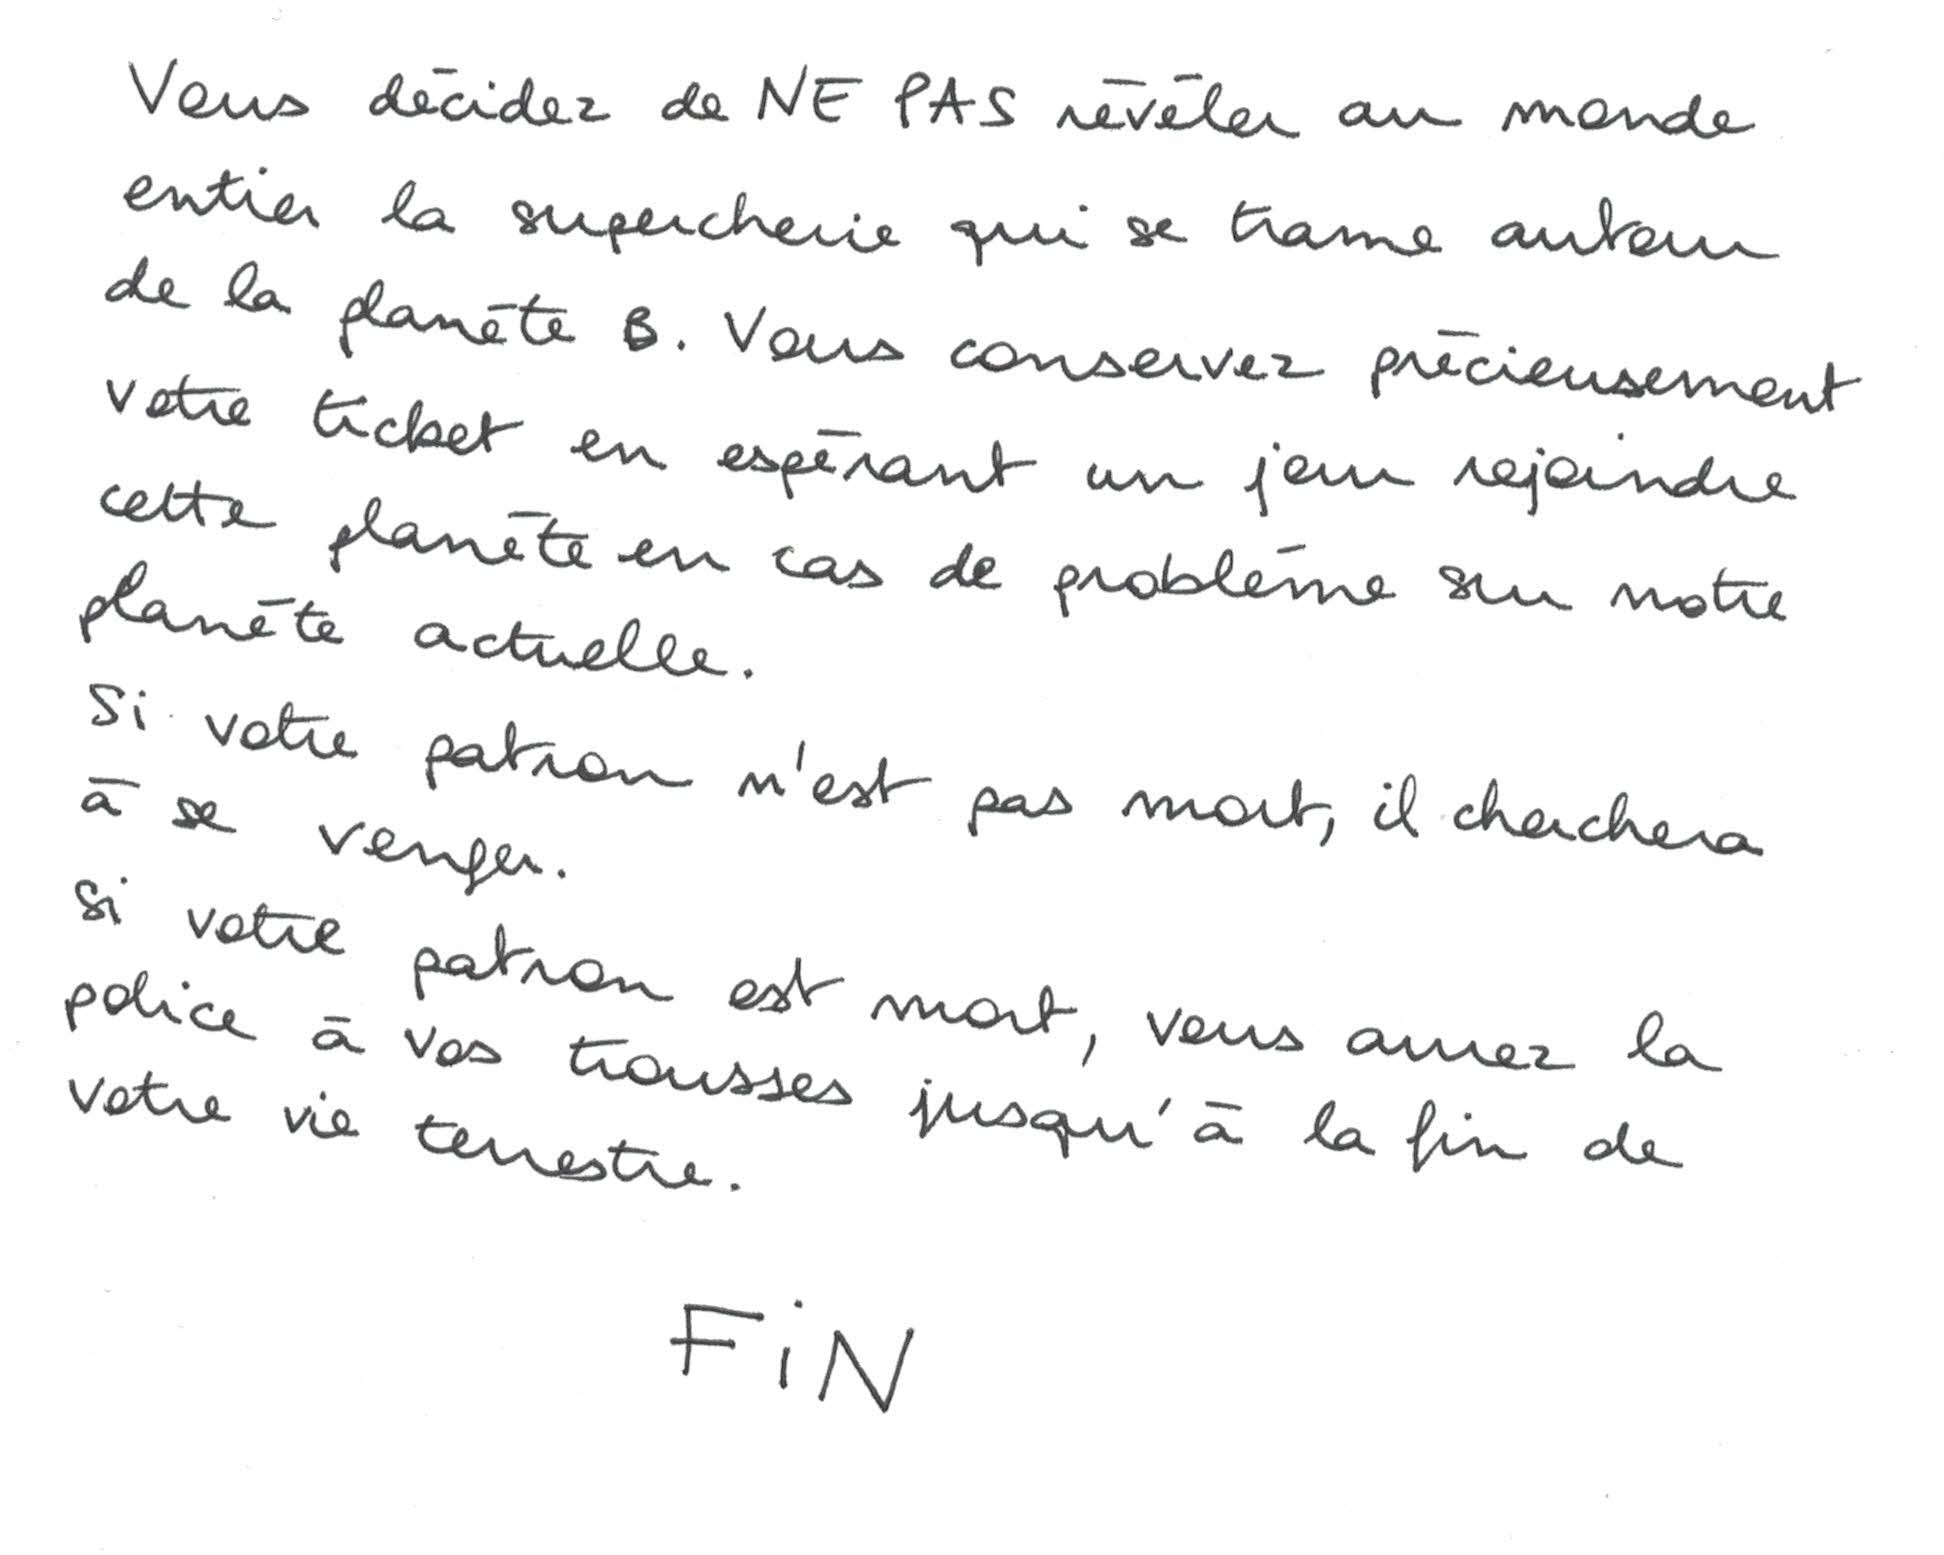 Vous décidez de NE PAS révéler au monde
entier la supercherie qui se trame autour
de la planète B. Vous conservez précieusement
votre ticket en espérant un jour rejoindre
cette planète en cas de problème sur notre
planète actuelle.
Si votre patron n'est pas mort, il cherchera
à se venger.
Si votre patron est mort, vous aurez la
police à vos trousses jusqu'à la fin de
votre vie terrestre.
FiN